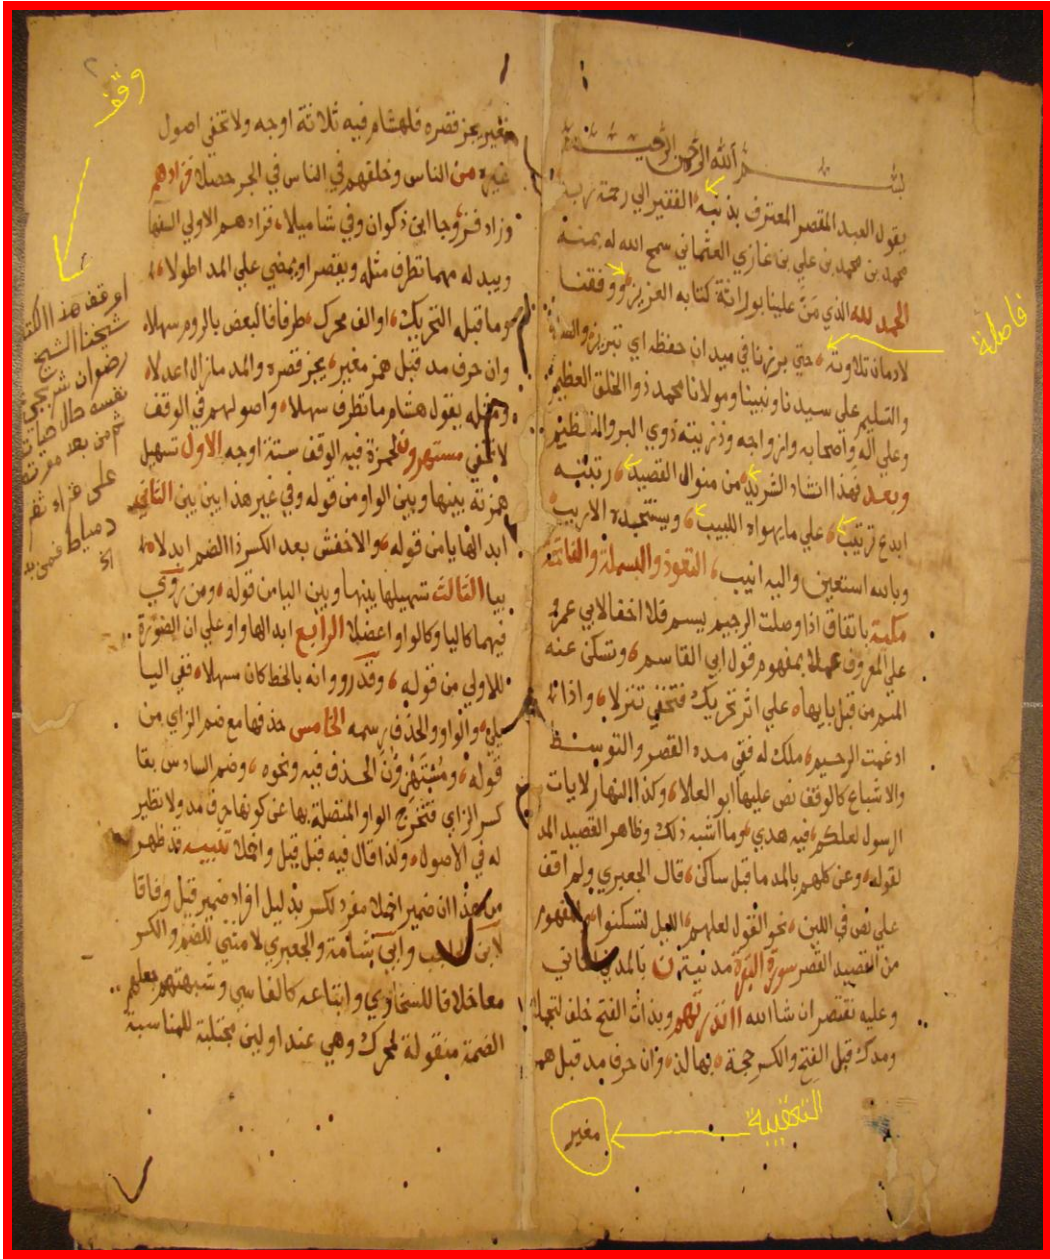 بسم الله الرحمن الرحيم
يقول العبد المقصر المعترف بذنبه الفقير الي رحمة ربه
محمد بن محمد بن علي بن غازي العثماني سمح الله له بمنه
الحمد لله الذي مَنَّ علينا بوراثة كتابه العزيز ووفقنا
لادمان تلاوته حتي برزنا في ميدان حفظه اي تبريز والصلاة
والتسليم علي سيدنا ونبينا ومولانا محمد ذو الخلق العظيم
وعلي آله واصحابه وازواجه وذريته ذوي البر والتعظيم
وبعد فهذا انشاد الشريد من منوال القصيد رتبته
ابدع ترتيب علي ما يهواه اللبيب ويستجيده الاريب
وبالله استعين واليه انيب التعوذ والبسملة والفاتحة
مكية باتفاق اذا وصلت الرحيم ببسم فلا اخفا لابي عمرو
علي المعروف عملا بمفهوم قول ابي القاسم وتسكن عنه
الميم من قبل بايها علي اثر تحريك فتخفي تنزلا واذا
ادغمت الرحيم ملك له ففي مده القصر والتوسط
والاشباع كالوقف نص عليها ابو العلا وكذا النهار لايات
الرسول لعلكم فيه هدي وما اشبه ذلك وظاهر القصيد المد
لقوله وعن كلهم بالمد ما قبل ساكن قال الجعبري ولم اقف
علي نص في اللين نحو القول لعلهم الليل لتسكنوا والمفهوم
من القصيد القصر سورة البقرة مدنية ن بالمدني الثاني
وعليه نقتصر ان شا الله اانذرتهم وبذات الفتح خلف لتجملا
ومدك قبل الفتح والكسر حجة بها لذ وان حرف مد قبل همز
مغير
التعقيبة
فاصلة
وقف
٢
مغير يجز قصره فلهشام فيه ثلاثة اوجه ولا تخفي اصول
غيره من الناس وخلفهم في الناس في الجر حصلا فزادهم
وزاد فزوجا ابن ذكوان وفي شا ميلا فزادهم الاولي السفها
ويبدله مهما تطرف مثله ويقصر او يمضي علي المد اطولا
وما قبله التحريك او الف محرك طرفا فالبعض بالروم سهلا
وان حرف مد قبل همز مغير يجز قصره والمد مازال اعدلا
ومثله يقول هشام ما تطرف سهلا واصولهم في الوقف
لا تخفي مستهزون لحمزة فيه الوقف ستة اوجه الاول تسهيل
همزته بينها وبين الواو من قوله وفي غير هذا بين بين الثاني
ابدالها يا من قوله والاخفش بعد الكسر ذا الضم ابدلا
بيا الثالث تسهيلها بينها وبين اليا من قوله ومن روي
فيهما كاليا وكالواو اعضلا الرابع ابدالها واو علي ان الصورة
للاولي من قوله وقد رووا انه بالخط كان مسهلا ففي اليا
يلي والواو والحذف رسمه الخامس حذفها مع ضم الزاي من
قوله ومستهزون الحذف فيه ونحوه وضم السادس بقا
كسر الزاي فتخرج الواو المتصلة بها عن كونها حرف مد ولا نظير
له في الاصول ولذا قال فيه قبل قيل واخملا تنبيه قد ظهر
من هذا ان ضمير اخملا مفرد لكسر بدليل افراد ضمير قيل وفاقا
لابن الحاجب وابي شامة والجعبري لا مثني للضم والكسر
معا خلافا للسخاوي واتباعه كالفاسي وشبهتهم جعلهم
الضمة منقولة لمحرك وهي عند اولين مجتلبة للمناسبة
اوقف هذا الكتاب
شيخنا الشيخ
رضوان
نفسه حال حياته
ثم من بعد موته
على
دمياط فمن بد